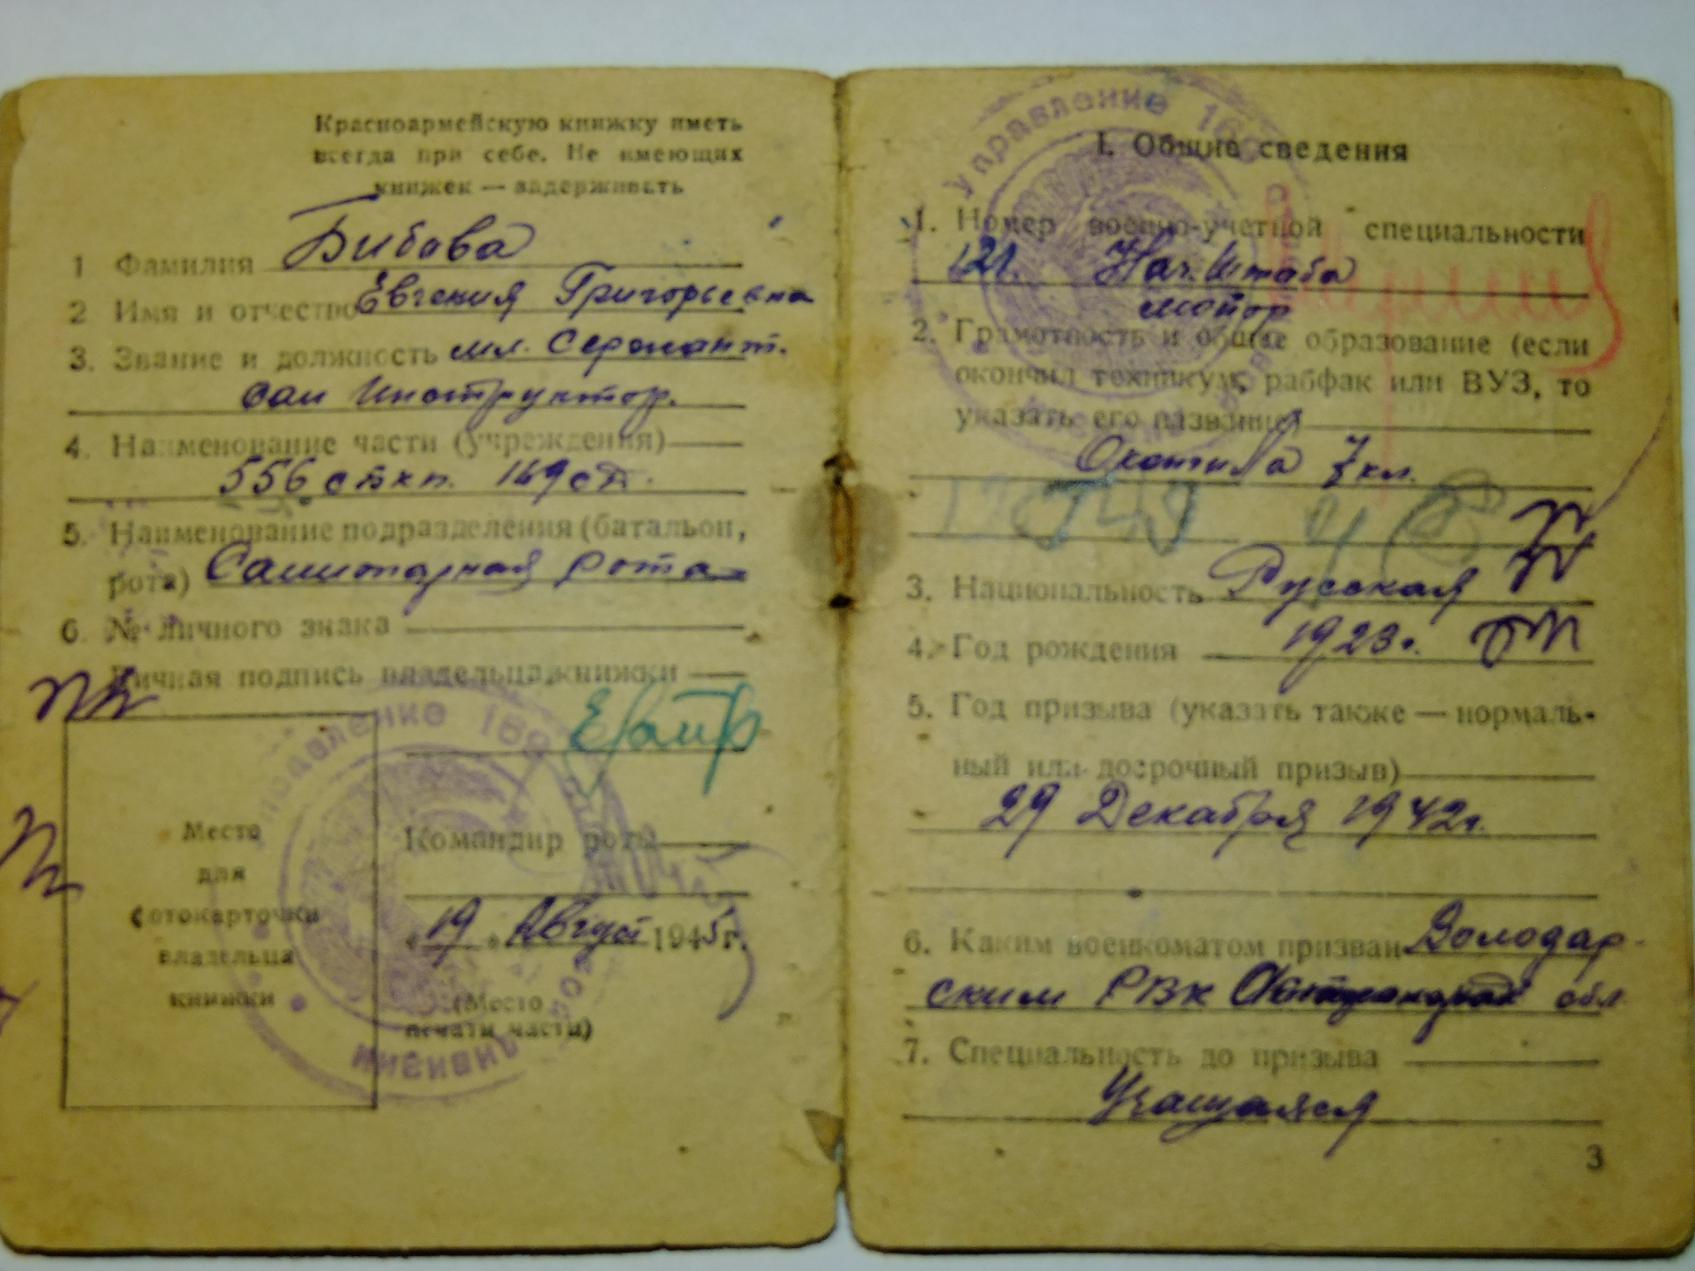 Красноармейскую книжку иметь
всегда при себе. Не имеющих
книжек — задерживать
1 Фамилия Бибова
2 Имя и отчество Евгения Григорьевна
3. Звание и должность мл. Сержант.
сан Инструктор.
4. Наименование части (учреждения)
556 сткп. 169 сд.
5. Наименование подразделения (батальон,
рота) Санитарная рота
6. № личного знака
Личная подпись владельца книжки
Управление 169
Место
для
фотокарточки
владельца
книжки
Командир роты
«19» Август 1945 г.
(Место
печати части)
дивизии
Управление 169
I. Общие сведения
1. Номер военно-учетной специальности
121. Нач. Штаба
2. Грамотность и общее образование (если
окончил техникум, рабфак или ВУЗ, то
указать его название)
Окончила 7 кл.
3. Национальность Русская
4. Год рождения 1923 г.
5. Год призыва (указать также — нормаль-
ный или досрочный призыв)
29 Декабря 1942 г.
6. Каким военкоматом призван Володар-
ским РВК обл.
7. Специальность до призыва
Учащаяся
3